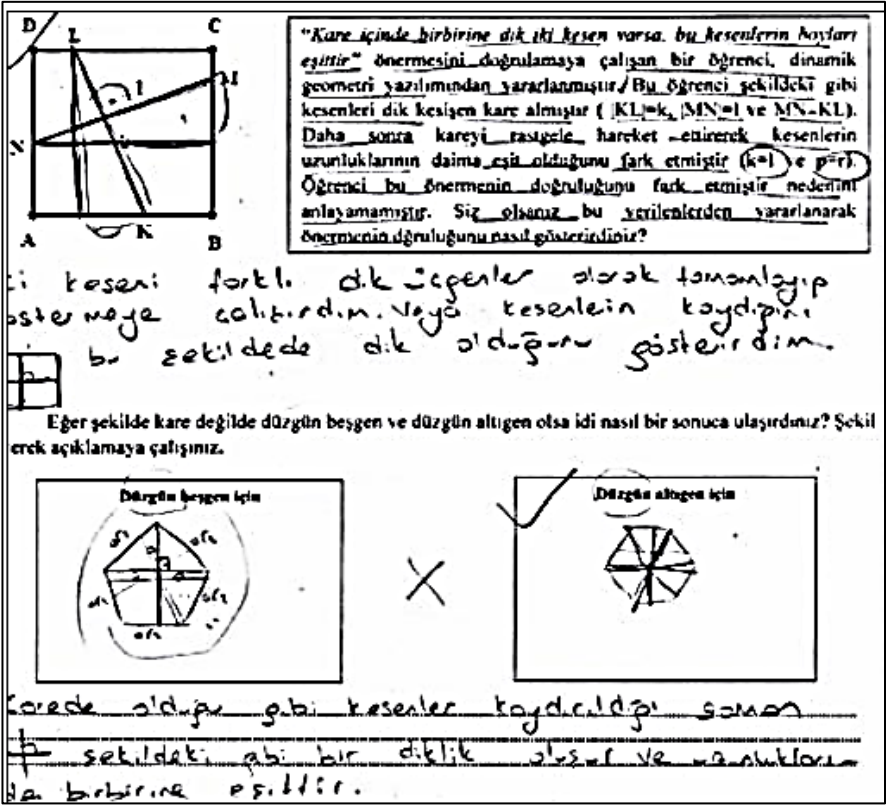 D L C
"Kare içinde birbirine dik iki kesen varsa, bu kesenlerin boyları
eşittir" önermesini doğrulamaya çalışan bir öğrenci, dinamik
geometri yazılımından yararlanmıştır. Bu öğrenci şekildeki gibi
kesenleri dik kesişen kare almıştır ( |KL|=k, |MN|=l ve MN⊥KL).
Daha sonra kareyi rastgele hareket ettirerek kesenlerin
uzunluklarının daima eşit olduğunu fark etmiştir (k=l ve p=r).
Öğrenci bu önermenin doğruluğunu fark etmiştir nedenini
anlayamamıştır. Siz olsanız bu verilenlerden yararlanarak
önermenin dğruluğunu nasıl gösterirdiniz?
M
N
A K B
keseni farklı dik üçgenler olarak tamamlayıp
çalışırdım. Veya kesenlerin kaydığını
bu şekildede dik olduğunu gösterirdim.
Eğer şekilde kare değilde düzgün beşgen ve düzgün altıgen olsa idi nasıl bir sonuca ulaşırdınız? Şekil
erek açıklamaya çalışınız.
Düzgün beşgen için
Düzgün altıgen için
Karede olduğu gibi kesenler kaydırıldığı zaman
şekildeki gibi bir diklik oluşur ve uzunlukları
da birbirine eşittir.